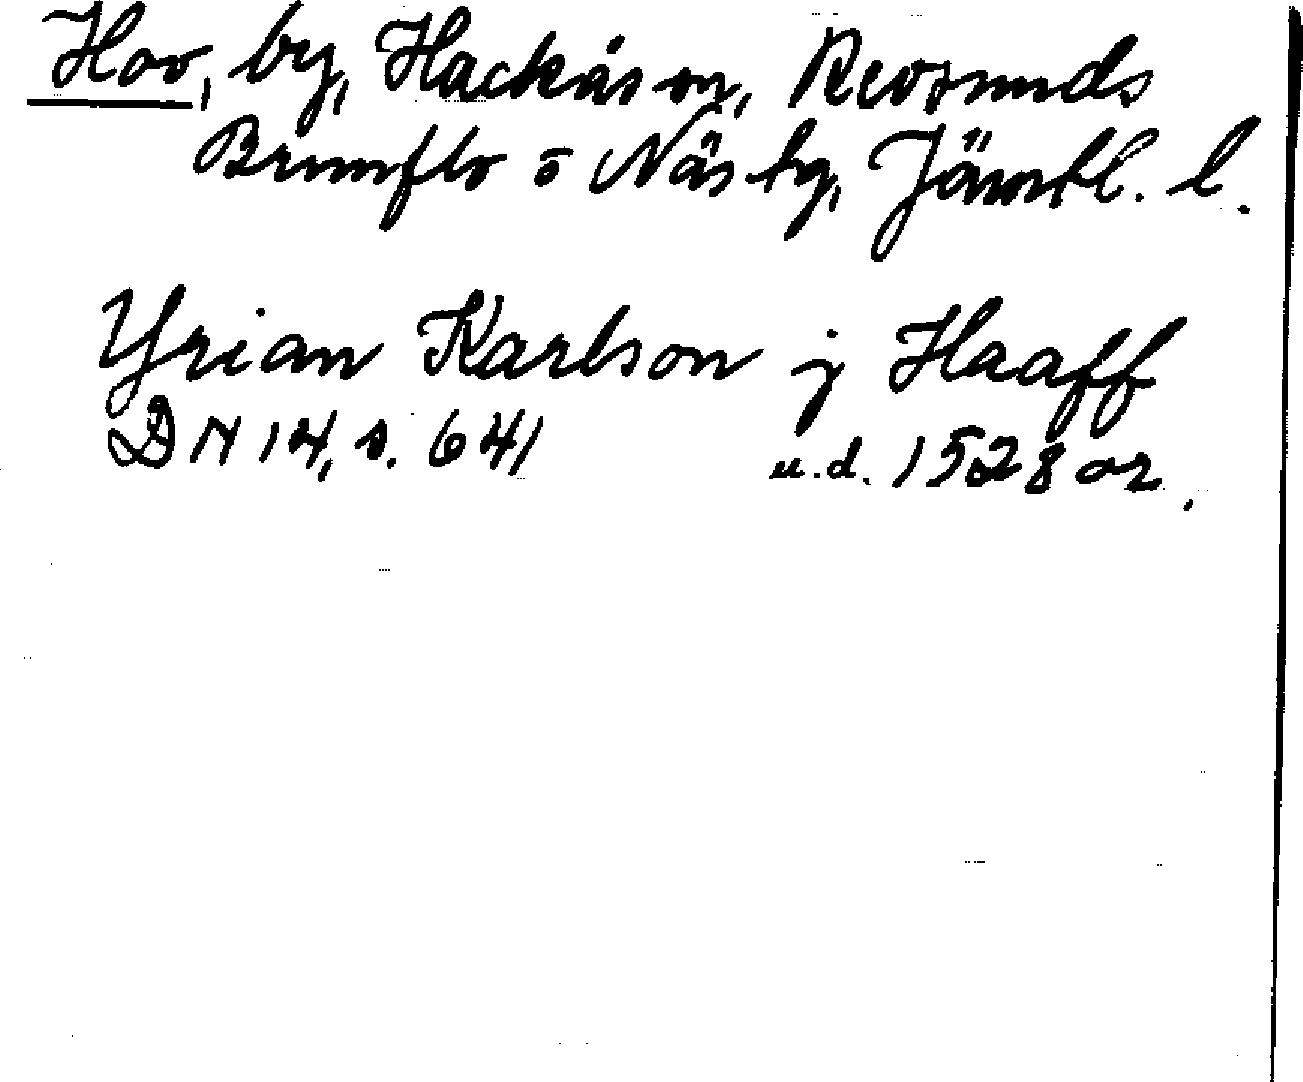 Hov, by, Hackås sn, Revsunds
Brunflo o Näs tg, Jämtl. l.
Yrian Karlson j Haaff
DN 14, s. 641 u.d. 1528 or.